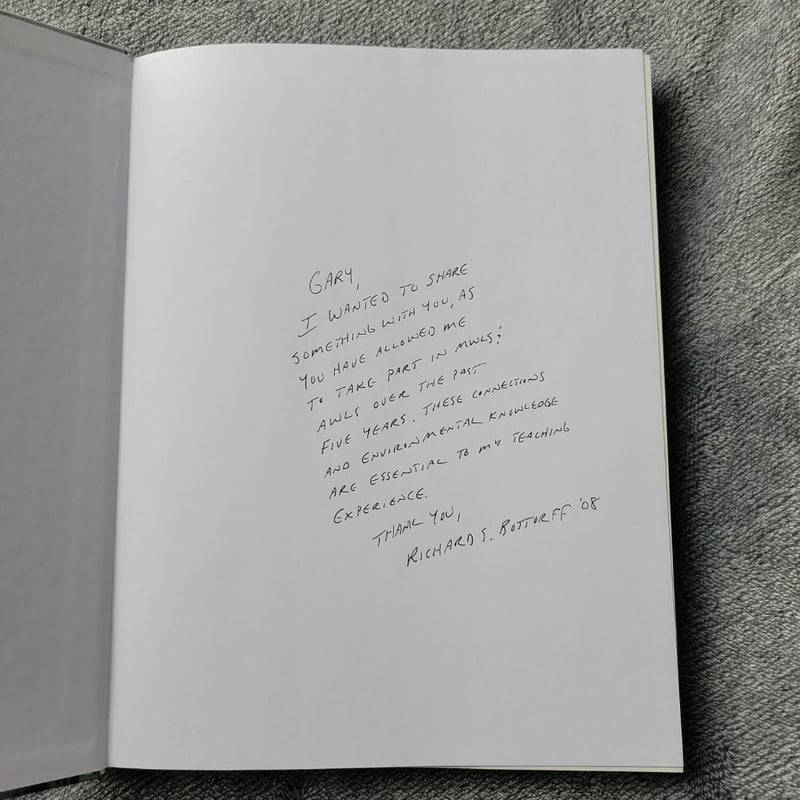 GARY,
I WANTED TO SHARE
SOMETHING WITH YOU, AS
YOU HAVE ALLOWED ME
TO TAKE PART IN MWLS:
AWLS OVER THE PAST
FIVE YEARS. THESE CONNECTIONS
AND ENVIRONMENTAL KNOWLEDGE
ARE ESSENTIAL TO MY TEACHING
EXPERIENCE.
THANK YOU,
RICHARD S. BOTTORFF '08